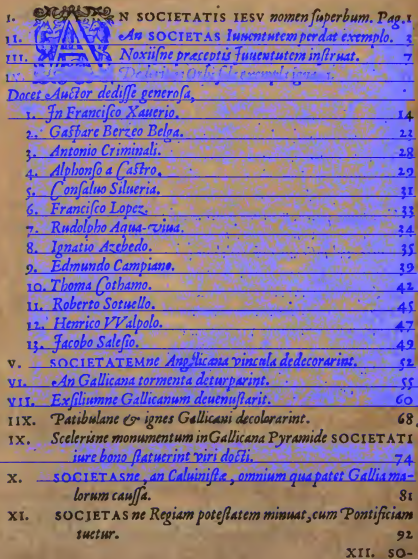 I. AN SOCIETATIS IESV nomen superbum. Pag. 1
II. An SOCIETAS Iuuentutem perdat exemplo. 2
III. Noxiisne præceptis Iuuentutem instruat. 7
Docet Auctor dedisse generosa,
1. In Francisco Xauerio. 14
2. Gaspare Berzeo Belga. 22
3. Antonio Criminali. 28
4. Alphonso a Castro. 29
5. Consaluo Silueria. 31
6. Francisco Lopez. 33
7. Rudolpho Aqua-viua. 34
8. Ignatio Azebedo. 35
9. Edmundo Campiano. 39
10. Thoma Cothamo. 42
11. Roberto Sotuello. 45
12. Henrico VValpolo. 47
13. Jacobo Salesio. 49
V. SOCIETATEMne Anglicana vincula dedecorarint. 52
VI. An Gallicana tormenta deturparint. 55
VII. Exsiliumne Gallicanum deuenustarit. 60
IIX. Patibulane & ignes Gallicani decolorarint. 68
IX. Scelerisne monumentum in Gallicana Pyramide SOCIETATI
iure bono statuerint viri docti. 74
X. SOCIETASne, an Caluinistæ, omnium qua patet Gallia ma-
lorum caussa. 81
XI. SOCIETAS ne Regiam potestatem minuat, cum Pontificiam
tuetur. 92
XII. SO-